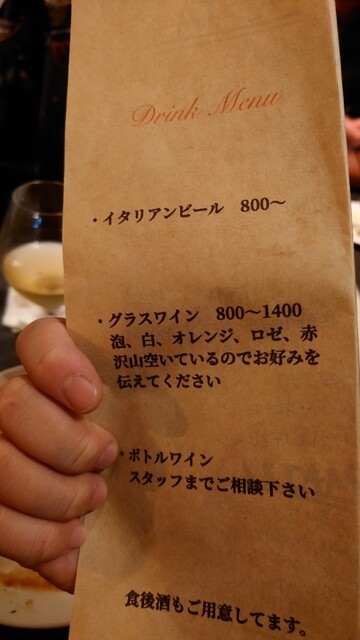 Drink Menu
・イタリアンビール 800〜
・グラスワイン 800〜1400
泡、白、オレンジ、ロゼ、赤
沢山空いているのでお好みを
伝えてください
・ボトルワイン
スタッフまでご相談下さい
食後酒もご用意してます。